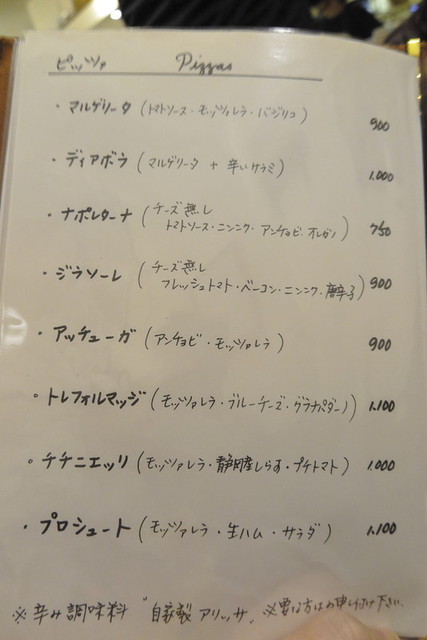 ピッツァ Pizzas
・マルゲリータ (トマトソース・モッツァレラ・バジリコ) 900
・ディアボラ (マルゲリータ + 辛いサラミ) 1.000
・ナポレターナ (チーズ無し
トマトソース・ニンニク・アンチョビ・オレガノ) 750
・ジラソーレ (チーズ無し
フレッシュトマト・ベーコン・ニンニク・唐辛子) 900
・アッチューガ (アンチョビ・モッツァレラ) 900
・トレフォルマッジ (モッツァレラ・ブルーチーズ・グラナパダーノ) 1.100
・チチニエッリ (モッツァレラ・静岡産しらす・プチトマト) 1.000
・プロシュート (モッツァレラ・生ハム・サラダ) 1.100
※辛み調味料 "自家製アリッサ" ※要る方はお申し付け下さい。